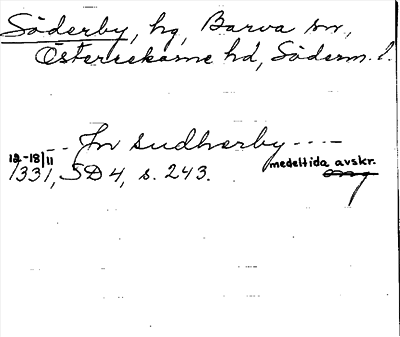 Söderby, hg, Barva sn,
Österrekarne hd, Söderm. l.
-- In sudhærby ----
12-18/11 1331, SD 4, s. 243. medeltida avskr.